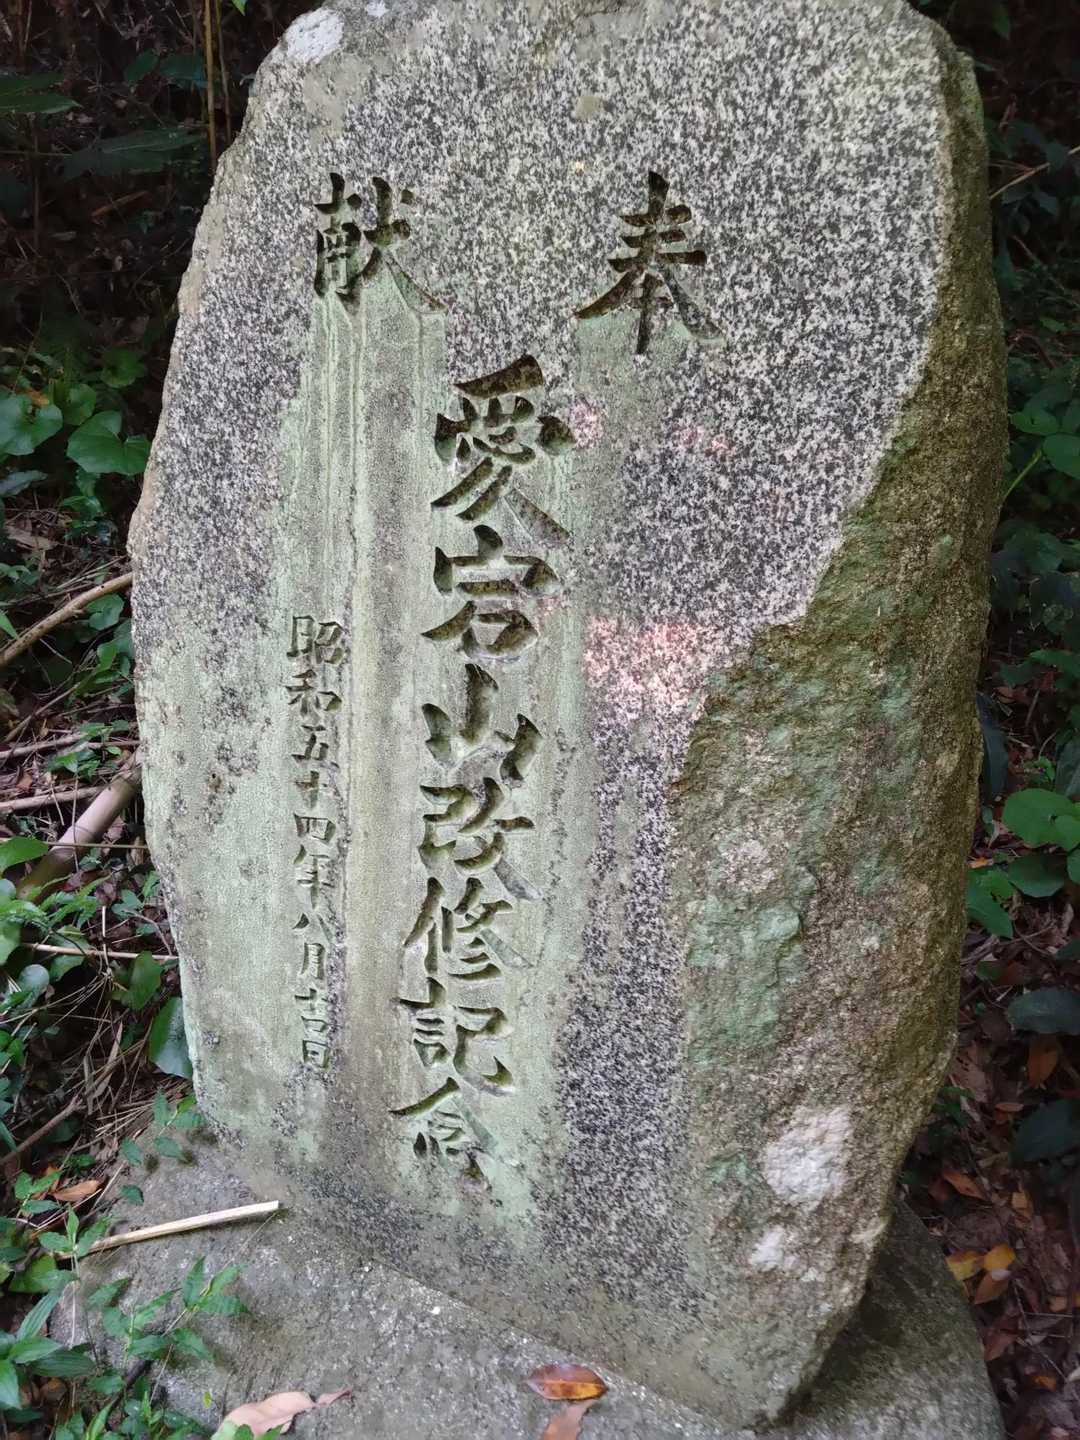 奉献
愛宕山改修記念
昭和五十四年八月吉日